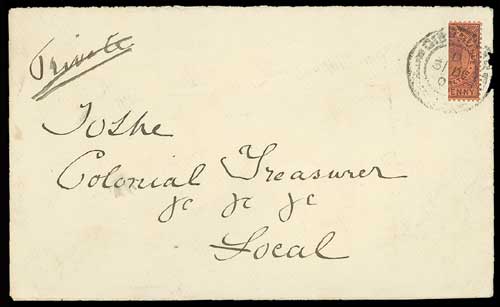 Private
To the
Colonial Treasurer
&c &c &c
Local
PENNY